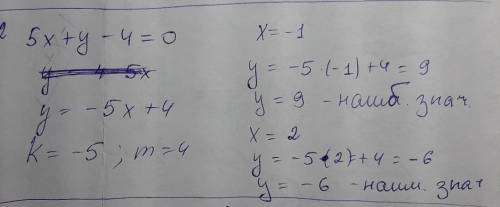 2
5x + y - 4 = 0
y = -5x + 4
k = -5 ; m = 4
x = -1
y = -5 · (-1) + 4 = 9
y = 9 - наиб. знач.
x = 2
y = -5 · (2) + 4 = -6
y = -6 - наим. знач